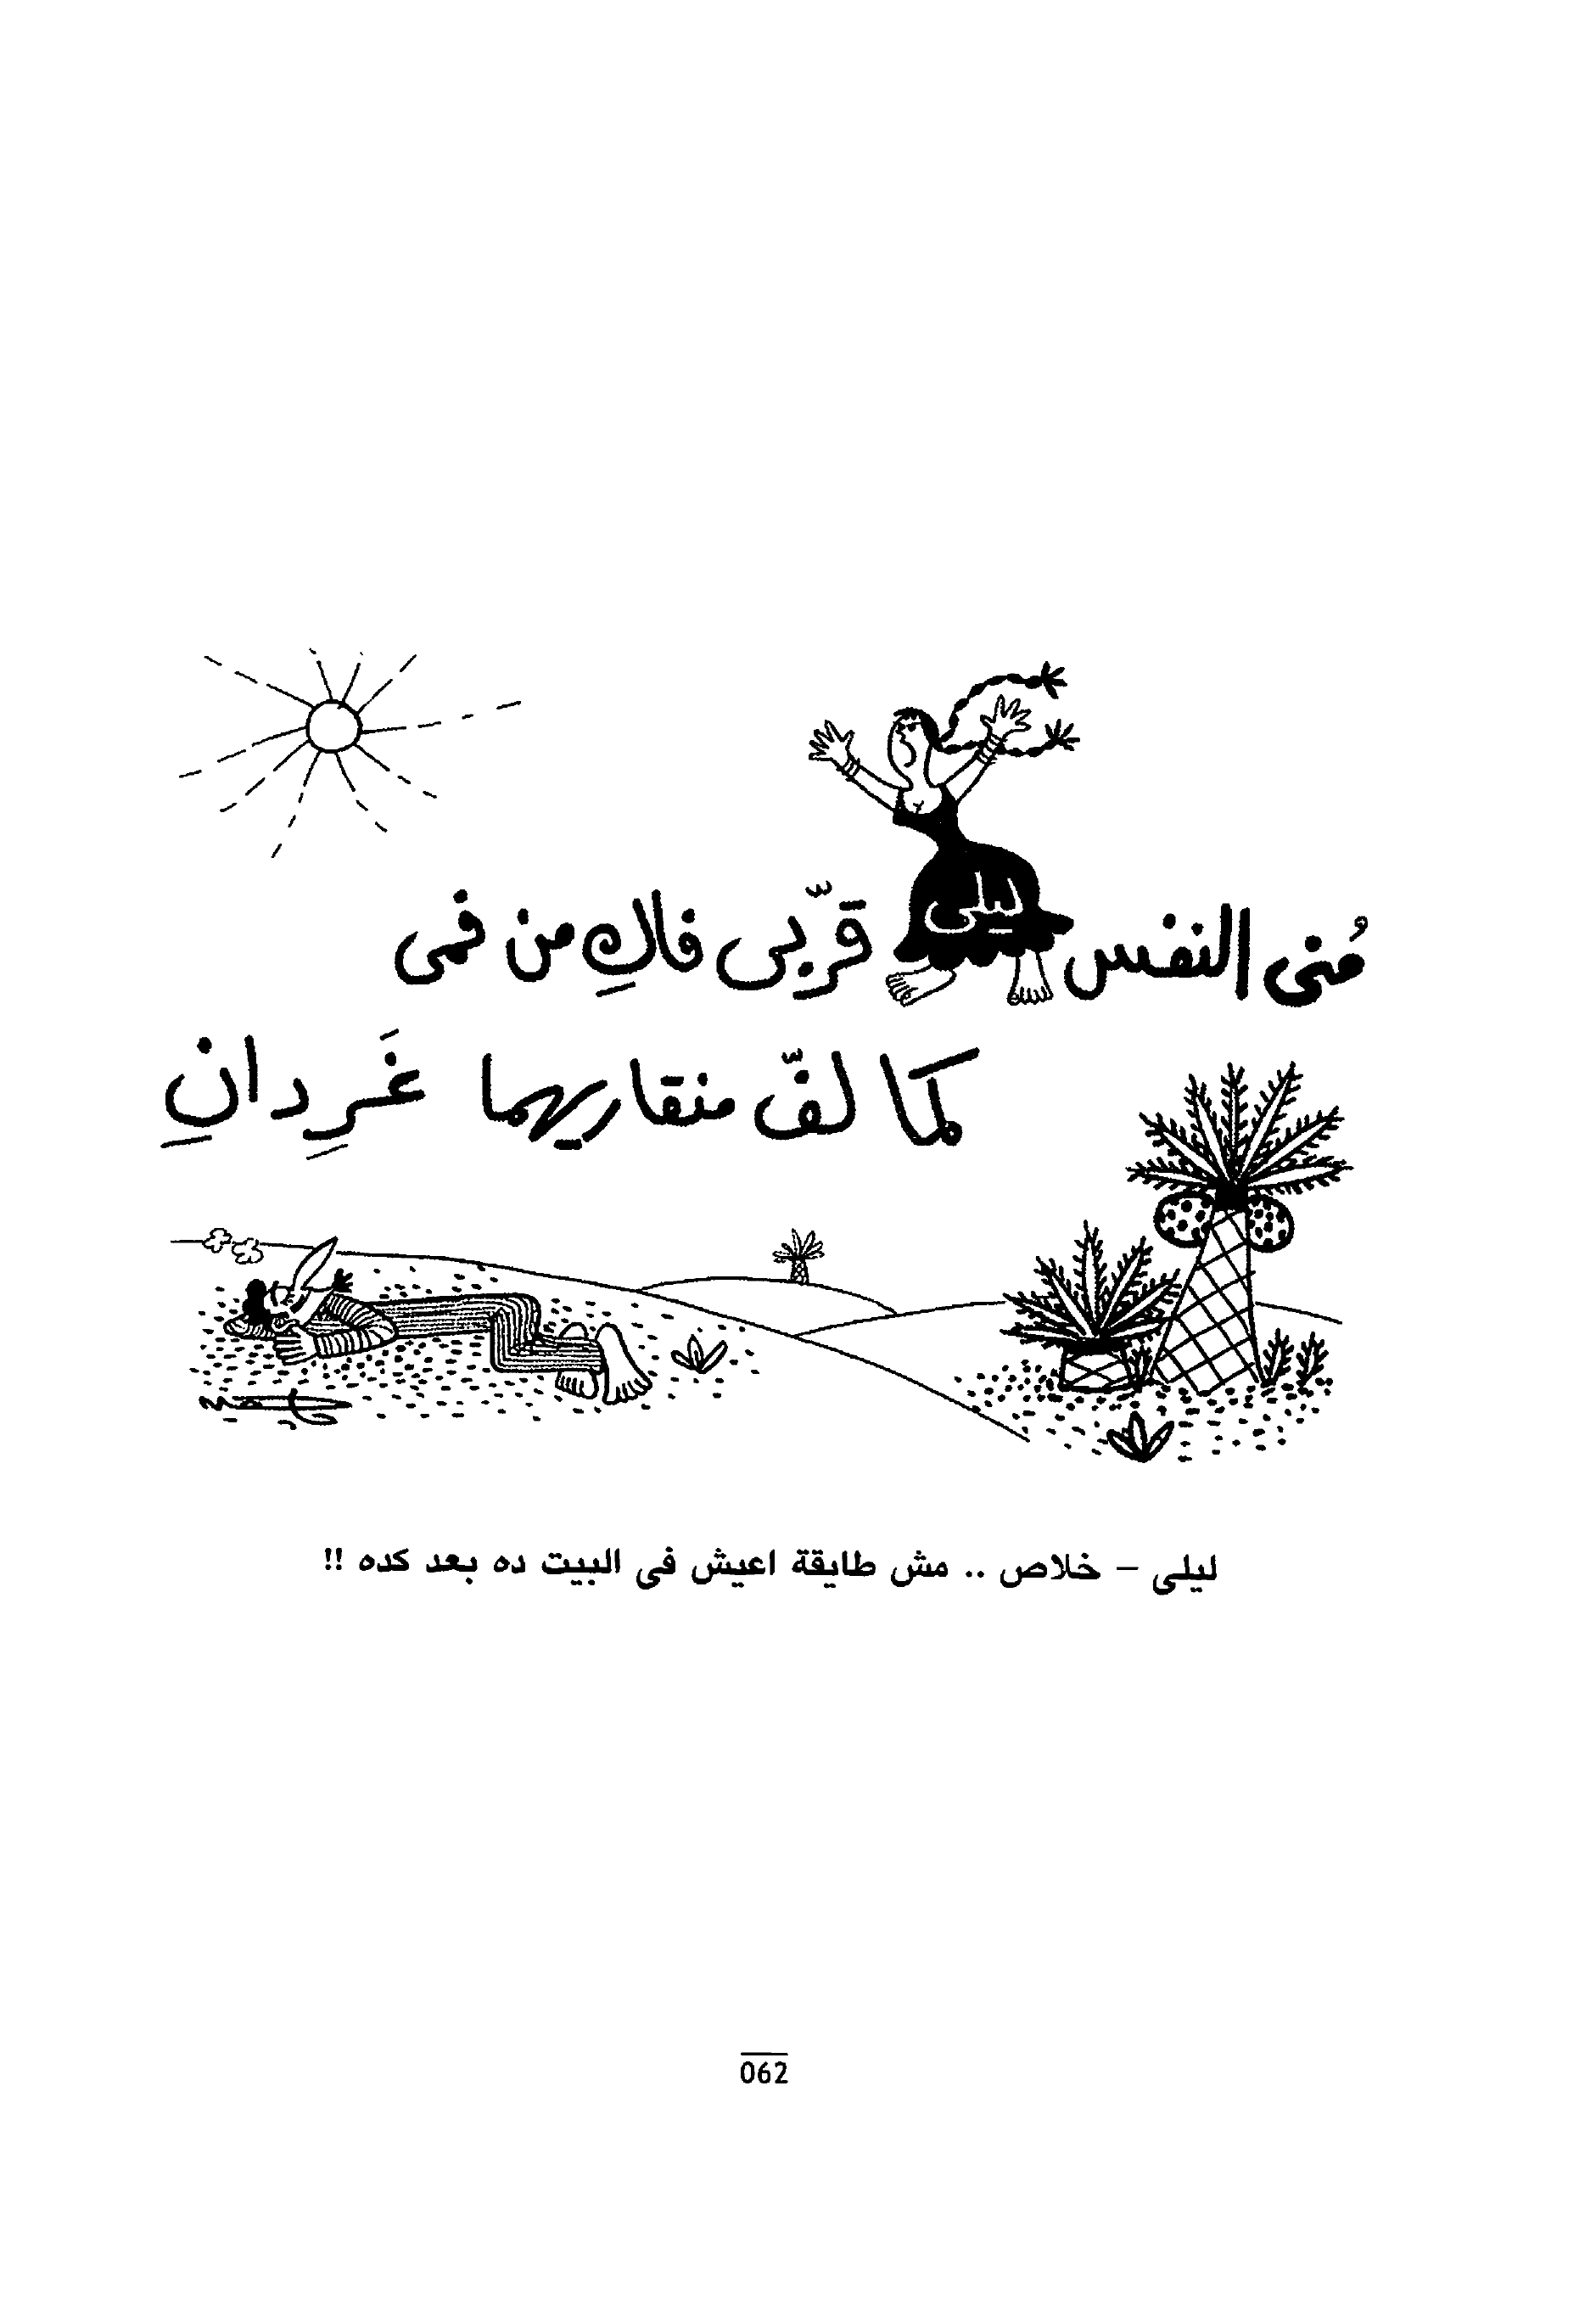 مُنى النفس ليلى قرّبى فاكِ من فمى
كما لفّ منقاريهما غَرِدانِ
ليلى – خلاص .. مش طايقة اعيش فى البيت ده بعد كده !!
062